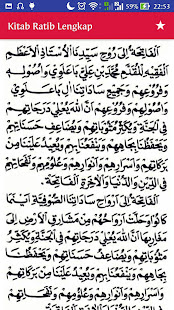 59% 22:53
Kitab Ratib Lengkap
الفاتحة إلى روح سيدنا الأستاذ الأعظم
الفقيه المقدم محمد بن علي باعلوي وأصوله
وفروعهم وجميع ساداتنا آل باعلوي
أن الله يعلي درجاتهم في الجنة
ويكثر من مثوباتهم ويضاعف حسناتهم
ويحفظنا بجاههم وينفعنا بهم ويعيد علينا من
بركاتهم وأسرارهم وأنوارهم وعلومهم ونفحاتهم
في الدين والدنيا والآخرة الفاتحة
الفاتحة إلى أرواح ساداتنا الصوفية أينما
كانوا وحلت أرواحهم من مشارق الأرض إلى
مغاربها أن الله يعلي درجاتهم في الجنة ويكثر
مثوباتهم ويضاعف حسناتهم ويحفظنا
بجاههم وينفعنا بهم ويعيد علينا من بركاتهم
وأسرارهم وأنوارهم وعلومهم ونفحاتهم